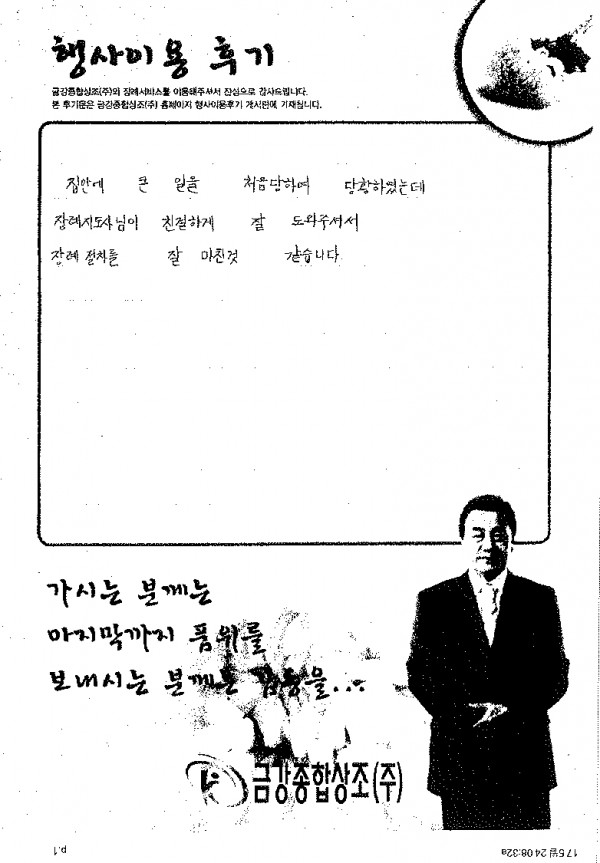 행사이용 후기
금강종합상조(주)의 장례서비스를 이용해주셔서 진심으로 감사드립니다.
본 후기문은 금강종합상조(주) 홈페이지 행사이용후기 게시판에 기재됩니다.
집안에 큰 일을 처음당하여 당황하였는데
장례지도사님이 친절하게 잘 도와주셔서
장례 절차를 잘 마친것 같습니다
가시는 분께는
마지막까지 품위를
보내시는 분께는 감동을...
금강종합상조(주)
p.1
17 5월 24 08:32a